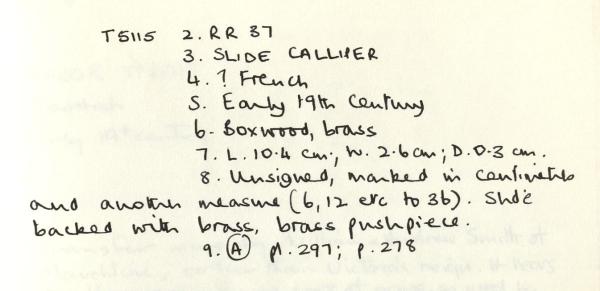 T5115 2. RR 37
3. SLIDE CALLIPER
4. ? French
5. Early 19th Century
6. Boxwood, brass
7. L. 10.4 cm; W. 2.6 cm; D. 0.3 cm.
8. Unsigned, marked in centimetres
and another measure (6, 12 etc to 36). Slide
backed with brass, brass pushpiece.
9. (A) pl. 297; p. 278